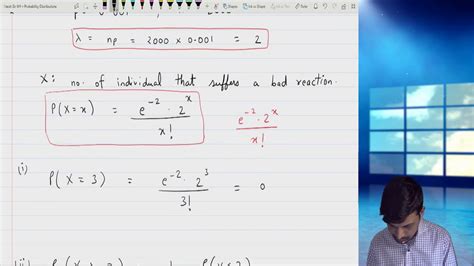 λ = np = 2000 × 0.001 = 2
X: no. of individual that suffers a bad reaction.
P(X=x) = e⁻² · 2ˣ / x!
e⁻² · 2ˣ / x!
(i)
P(X = 3) = e⁻² · 2³ / 3! = 0